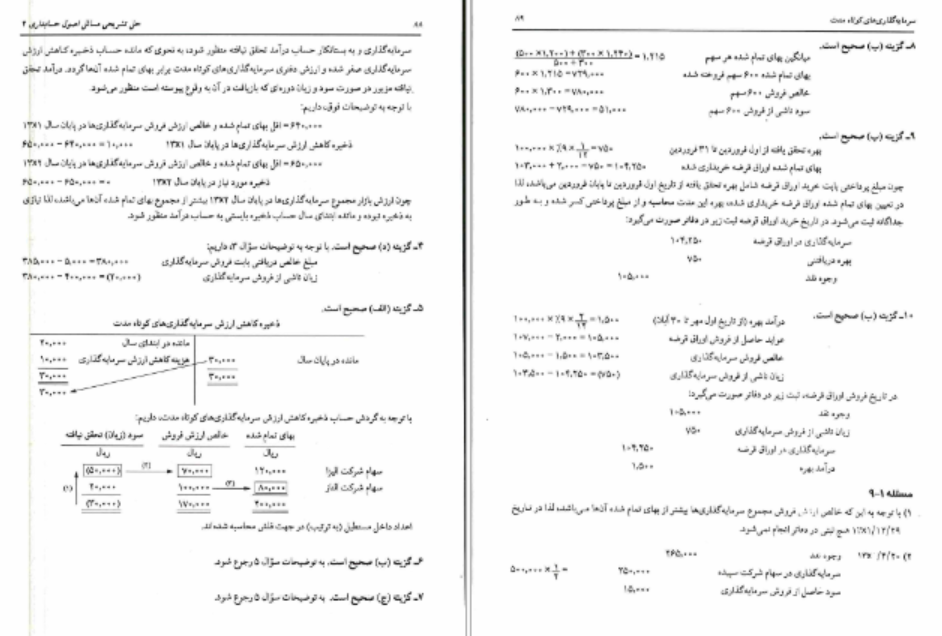 ۸۸
حل تشریحی مسائل اصول حسابداری ۲
سرمایه‌گذاری و به بستانکار حساب درآمد تحقق نیافته منظور شود، به نحوی که مانده حساب ذخیره کاهش ارزش
سرمایه‌گذاری صفر شده و ارزش دفتری سرمایه‌گذاری‌های کوتاه مدت برابر بهای تمام شده آن‌ها گردد. درآمد تحقق
نیافته مزبور در صورت سود و زیان دوره‌ای که بازیافت در آن به وقوع پیوسته است منظور می‌شود.
با توجه به توضیحات فوق، داریم:
۶۴۰,۰۰۰ = اقل بهای تمام شده و خالص ارزش فروش سرمایه‌گذاری‌ها در پایان سال ۱۳x۱
ذخیره کاهش ارزش سرمایه‌گذاری‌ها در پایان سال ۱۳x۱ ۶۵۰,۰۰۰ − ۶۴۰,۰۰۰ = ۱۰,۰۰۰
۶۵۰,۰۰۰ = اقل بهای تمام شده و خالص ارزش فروش سرمایه‌گذاری‌ها در پایان سال ۱۳x۲
ذخیره مورد نیاز در پایان سال ۱۳x۲ ۶۵۰,۰۰۰ − ۶۵۰,۰۰۰ = ۰
چون ارزش بازار مجموع سرمایه‌گذاری‌ها در پایان سال ۱۳x۲ بیشتر از مجموع بهای تمام شده آن‌ها می‌باشد، لذا نیازی
به ذخیره نبوده و مانده ابتدای سال حساب ذخیره بایستی به حساب درآمد منظور شود.
۴ـ گزینه (د) صحیح است. با توجه به توضیحات سؤال ۳، داریم:
مبلغ خالص دریافتی بابت فروش سرمایه‌گذاری ۳۸۵,۰۰۰ − ۵,۰۰۰ = ۳۸۰,۰۰۰
زیان ناشی از فروش سرمایه‌گذاری ۳۸۰,۰۰۰ − ۴۰۰,۰۰۰ = (۲۰,۰۰۰)
۵ـ گزینه (الف) صحیح است.
ذخیره کاهش ارزش سرمایه‌گذاری‌های کوتاه مدت
مانده در ابتدای سال ۲۰,۰۰۰
مانده در پایان سال ۳۰,۰۰۰ هزینه کاهش ارزش سرمایه‌گذاری ۱۰,۰۰۰
۳۰,۰۰۰ ۳۰,۰۰۰
۳۰,۰۰۰
با توجه به گردش حساب ذخیره کاهش ارزش سرمایه‌گذاری‌های کوتاه مدت، داریم:
بهای تمام شده خالص ارزش فروش سود (زیان) تحقق نیافته
ریال ریال ریال
سهام شرکت الیزا ۱۲۰,۰۰۰ ۷۰,۰۰۰ (۲) (۵۰,۰۰۰)
سهام شرکت الناز ۸۰,۰۰۰ (۳) ۱۰۰,۰۰۰ ۲۰,۰۰۰ (۱)
۲۰۰,۰۰۰ ۱۷۰,۰۰۰ (۳۰,۰۰۰)
اعداد داخل مستطیل (به ترتیب) در جهت فلش محاسبه شده‌اند.
۶ـ گزینه (ب) صحیح است. به توضیحات سؤال ۵ رجوع شود.
۷ـ گزینه (ج) صحیح است. به توضیحات سؤال ۵ رجوع شود.
سرمایه‌گذاری‌های کوتاه مدت
۸۹
۸ـ گزینه (ب) صحیح است.
میانگین بهای تمام شده هر سهم (۵۰۰ × ۱,۲۰۰) + (۳۰۰ × ۱,۲۴۰) / ۵۰۰ + ۳۰۰ = ۱,۲۱۵
بهای تمام شده ۶۰۰ سهم فروخته شده ۶۰۰ × ۱,۲۱۵ = ۷۲۹,۰۰۰
خالص فروش ۶۰۰ سهم ۶۰۰ × ۱,۳۰۰ = ۷۸۰,۰۰۰
سود ناشی از فروش ۶۰۰ سهم ۷۸۰,۰۰۰ − ۷۲۹,۰۰۰ = ۵۱,۰۰۰
۹ـ گزینه (ب) صحیح است.
بهره تحقق یافته از اول فروردین تا ۳۱ فروردین ۱۰۰,۰۰۰ × ٪۹ × ۱/۱۲ = ۷۵۰
بهای تمام شده اوراق قرضه خریداری شده ۱۰۳,۰۰۰ + ۲,۰۰۰ − ۷۵۰ = ۱۰۴,۲۵۰
چون مبلغ پرداختی بابت خرید اوراق قرضه شامل بهره تحقق یافته از تاریخ اول فروردین تا پایان فروردین می‌باشد، لذا
در تعیین بهای تمام شده اوراق قرضه خریداری شده، بهره این مدت محاسبه و از مبلغ پرداختی کسر شده و به طور
جداگانه ثبت می‌شود. در تاریخ خرید اوراق قرضه ثبت زیر در دفاتر صورت می‌گیرد:
سرمایه‌گذاری در اوراق قرضه ۱۰۴,۲۵۰
بهره دریافتنی ۷۵۰
وجوه نقد ۱۰۵,۰۰۰
۱۰ـ گزینه (ب) صحیح است.
درآمد بهره (از تاریخ اول مهر تا ۳۰ آبان) ۱۰۰,۰۰۰ × ٪۹ × ۲/۱۲ = ۱,۵۰۰
عواید حاصل از فروش اوراق قرضه ۱۰۷,۰۰۰ − ۲,۰۰۰ = ۱۰۵,۰۰۰
خالص فروش سرمایه‌گذاری ۱۰۵,۰۰۰ − ۱,۵۰۰ = ۱۰۳,۵۰۰
زیان ناشی از فروش سرمایه‌گذاری ۱۰۳,۵۰۰ − ۱۰۴,۲۵۰ = (۷۵۰)
در تاریخ فروش اوراق قرضه، ثبت زیر در دفاتر صورت می‌گیرد:
وجوه نقد ۱۰۵,۰۰۰
زیان ناشی از فروش سرمایه‌گذاری ۷۵۰
سرمایه‌گذاری در اوراق قرضه ۱۰۴,۲۵۰
درآمد بهره ۱,۵۰۰
مسئله ۱-۹
۱) با توجه به این که خالص ارزش فروش مجموع سرمایه‌گذاری‌ها بیشتر از بهای تمام شده آن‌ها می‌باشد، لذا در تاریخ
۱۳x۱/۱۲/۲۹ هیچ ثبتی در دفاتر انجام نمی‌شود.
۲) ۱۳x /۴/۲۰ وجوه نقد ۲۶۵,۰۰۰
سرمایه‌گذاری در سهام شرکت سپیده ۲۵۰,۰۰۰ = ۵۰۰,۰۰۰ × ۱/۲
سود حاصل از فروش سرمایه‌گذاری ۱۵,۰۰۰